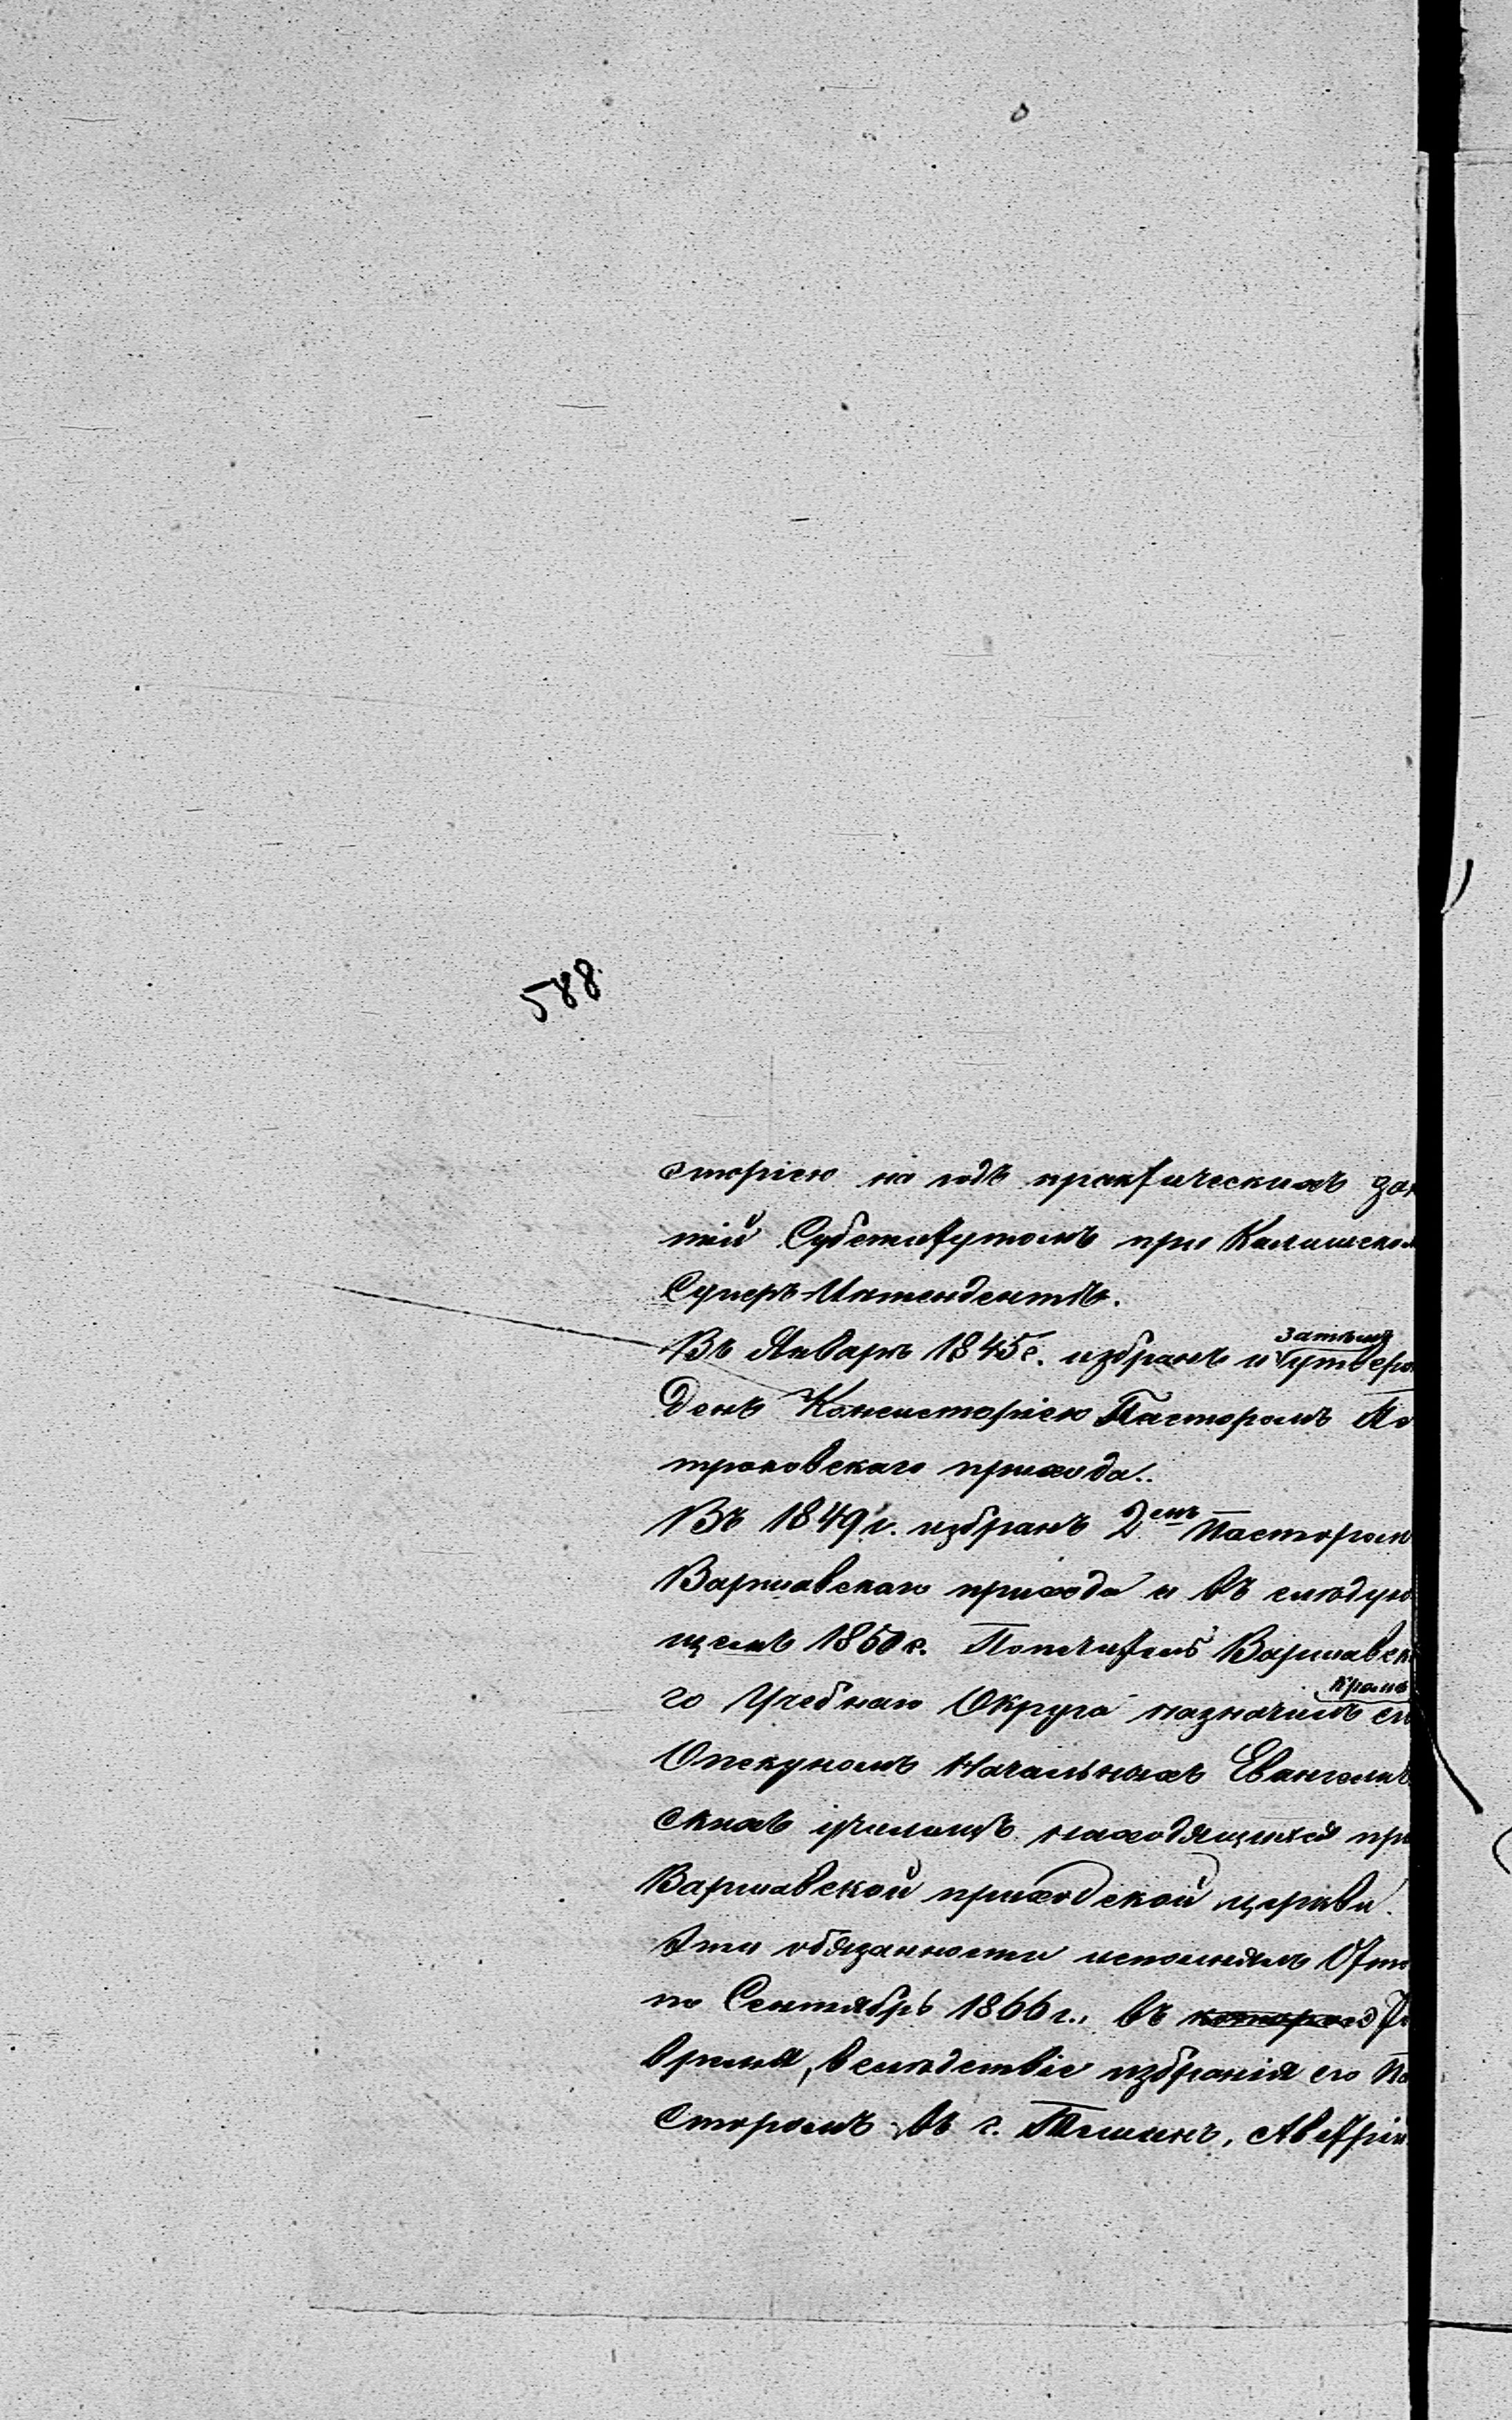 588
сторіею на годъ практическихъ зан
тій Субститутомъ при Калишском
Суперъ-Интендентѣ.
Въ Январѣ 1845 г. избранъ и затѣмъ утверж
денъ Консисторіею Пасторомъ Пе
троковскаго прихода.
Въ 1849 г. избранъ 2емъ Пастором
Варшавскаго прихода и въ слѣдую
щемъ 1850 г. Попечитель Варшавска
го Учебнаго Округа назначилъ его
Опекуномъ Начальныхъ Евангелич
скихъ училищъ находящихся при
Варшавской приходской церкви.
Эти обязанности исполнялъ Отто
по Сентябрь 1866 г., въ которое
время, вслѣдствіе избранія его Па
сторомъ въ г. Тешинъ, Австрій